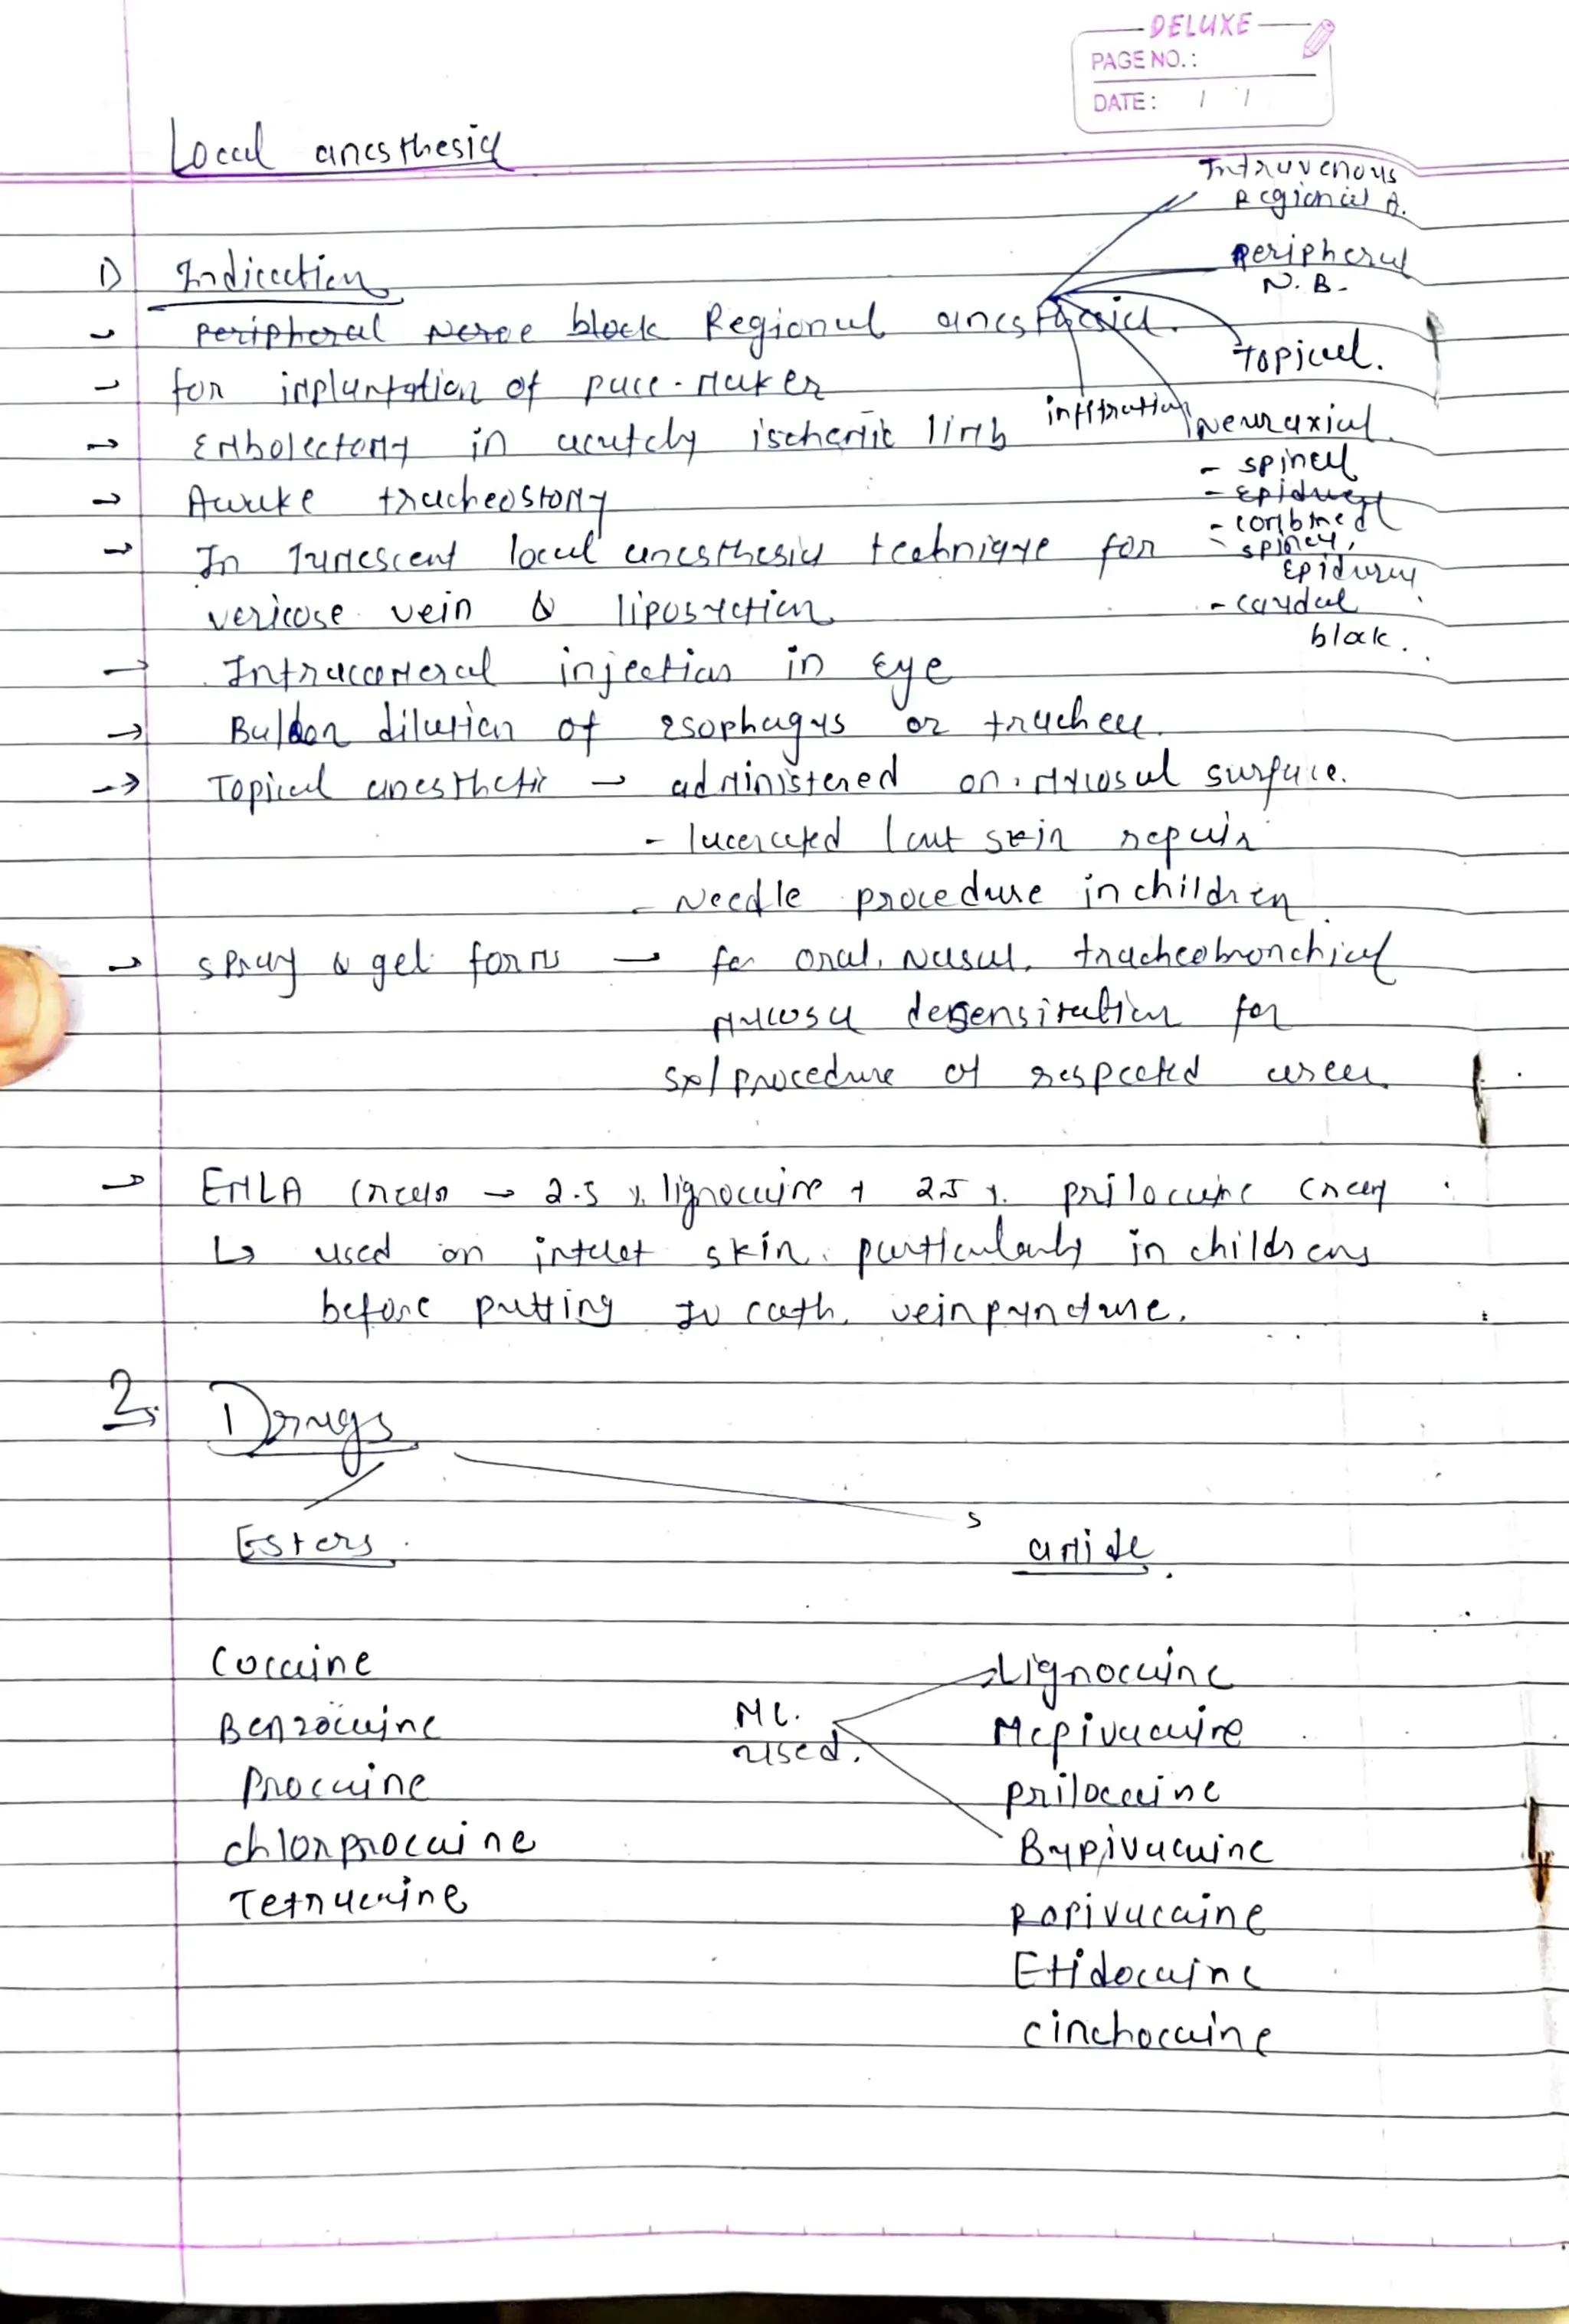 DELUXE
PAGE NO.:
DATE: / /
Local anesthesia
1) Indication
- Peripheral Nerve block Regional anesthesia.
Intravenous
Regional A.
Peripheral
N.B.
Topical.
infiltration
Neuraxial.
- spinal
- Epidural
- combined
- spinal,
Epidural
- caudal
block.
- for implantation of pace-maker
→ Embolectomy in acutely ischemic limb
→ Awake tracheostomy
→ In Tumescent local anesthesia technique for
vericose vein & liposuction
→ Intracameral injection in Eye
→ Buloon dilution of esophagus or trachea.
→ Topical anesthetic → administered on mucosal surface.
- lacerated / cut skin repair
- Needle procedure in children
→ spray & gel forms → for oral, Nasal, tracheobronchial
mucosa densensitation for
Sx/procedure of respected area.
→ EMLA cream → 2.5 % lignocaine + 2.5 % prilocaine cream
↳ used on intact skin particularly in childrens
before putting IV cath, veinpuncture.
2. Drugs
Esters
amide
Cocaine
Lignocaine
Benzocaine
MC.
used.
Mepivacaine
Procaine
prilocaine
chlorprocaine
Bupivacaine
Tetracaine
Ropivacaine
Etidocaine
cinchocaine